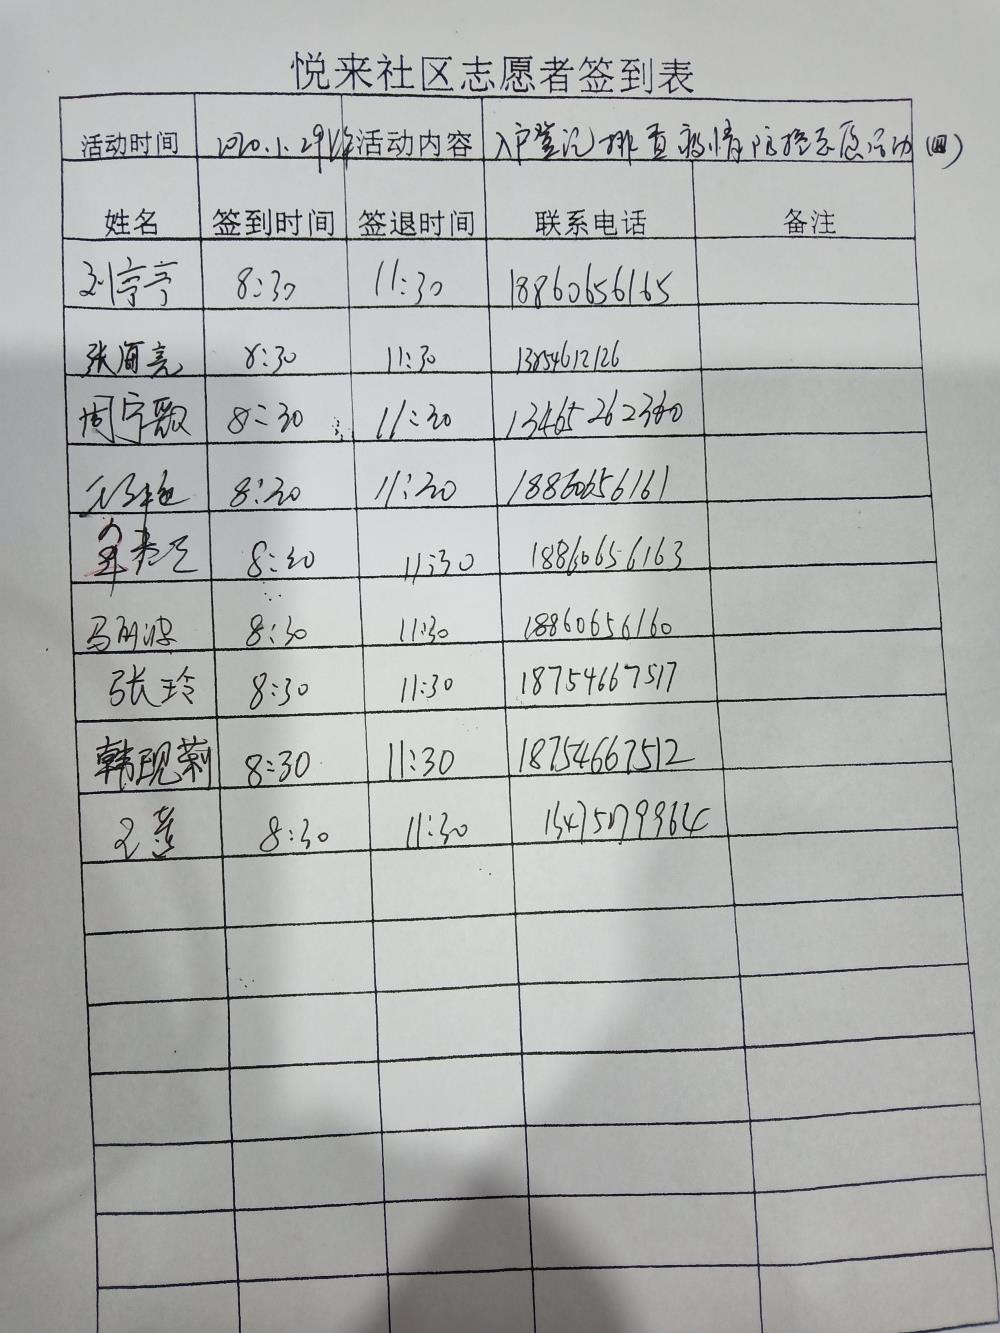 悦来社区志愿者签到表
活动时间 2020.1.29 活动内容 入户登记排查疫情防控志愿活动(四)
姓名 签到时间 签退时间 联系电话 备注
刘宁宁 8:30 11:30 18860656165
张 亮 8:30 11:30 13854612126
周宁 8:30 11:30 13465262340
8:30 11:30 18860656161
8:30 11:30 18860656163
马 波 8:30 11:30 18860656160
张玲 8:30 11:30 18754667517
韩现莉 8:30 11:30 18754667512
王 8:30 11:30